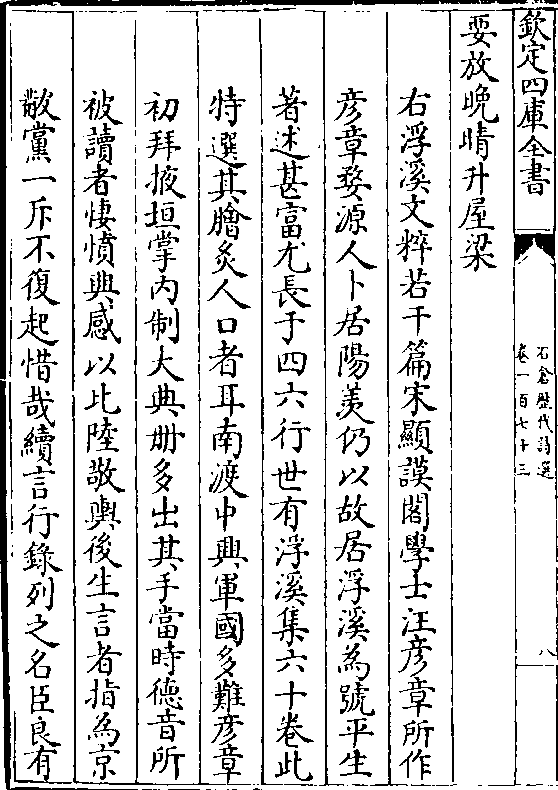 欽定四庫全書
石倉歴代詩選
卷一百七十三
八
要放晩晴升屋梁
右浮溪文粹若干篇宋顯謨閣學士汪彦章所作
彦章婺源人卜居陽羨仍以故居浮溪為號平生
著述甚富尤長于四六行世有浮溪集六十卷此
特選其膾炙人口者耳南渡中興軍國多難彦章
初拜掖垣掌内制大典册多出其手當時德音所
被讀者悽憤興感以比陸敬輿後生言者指為京
黻黨一斥不復起惜哉續言行錄列之名臣良有